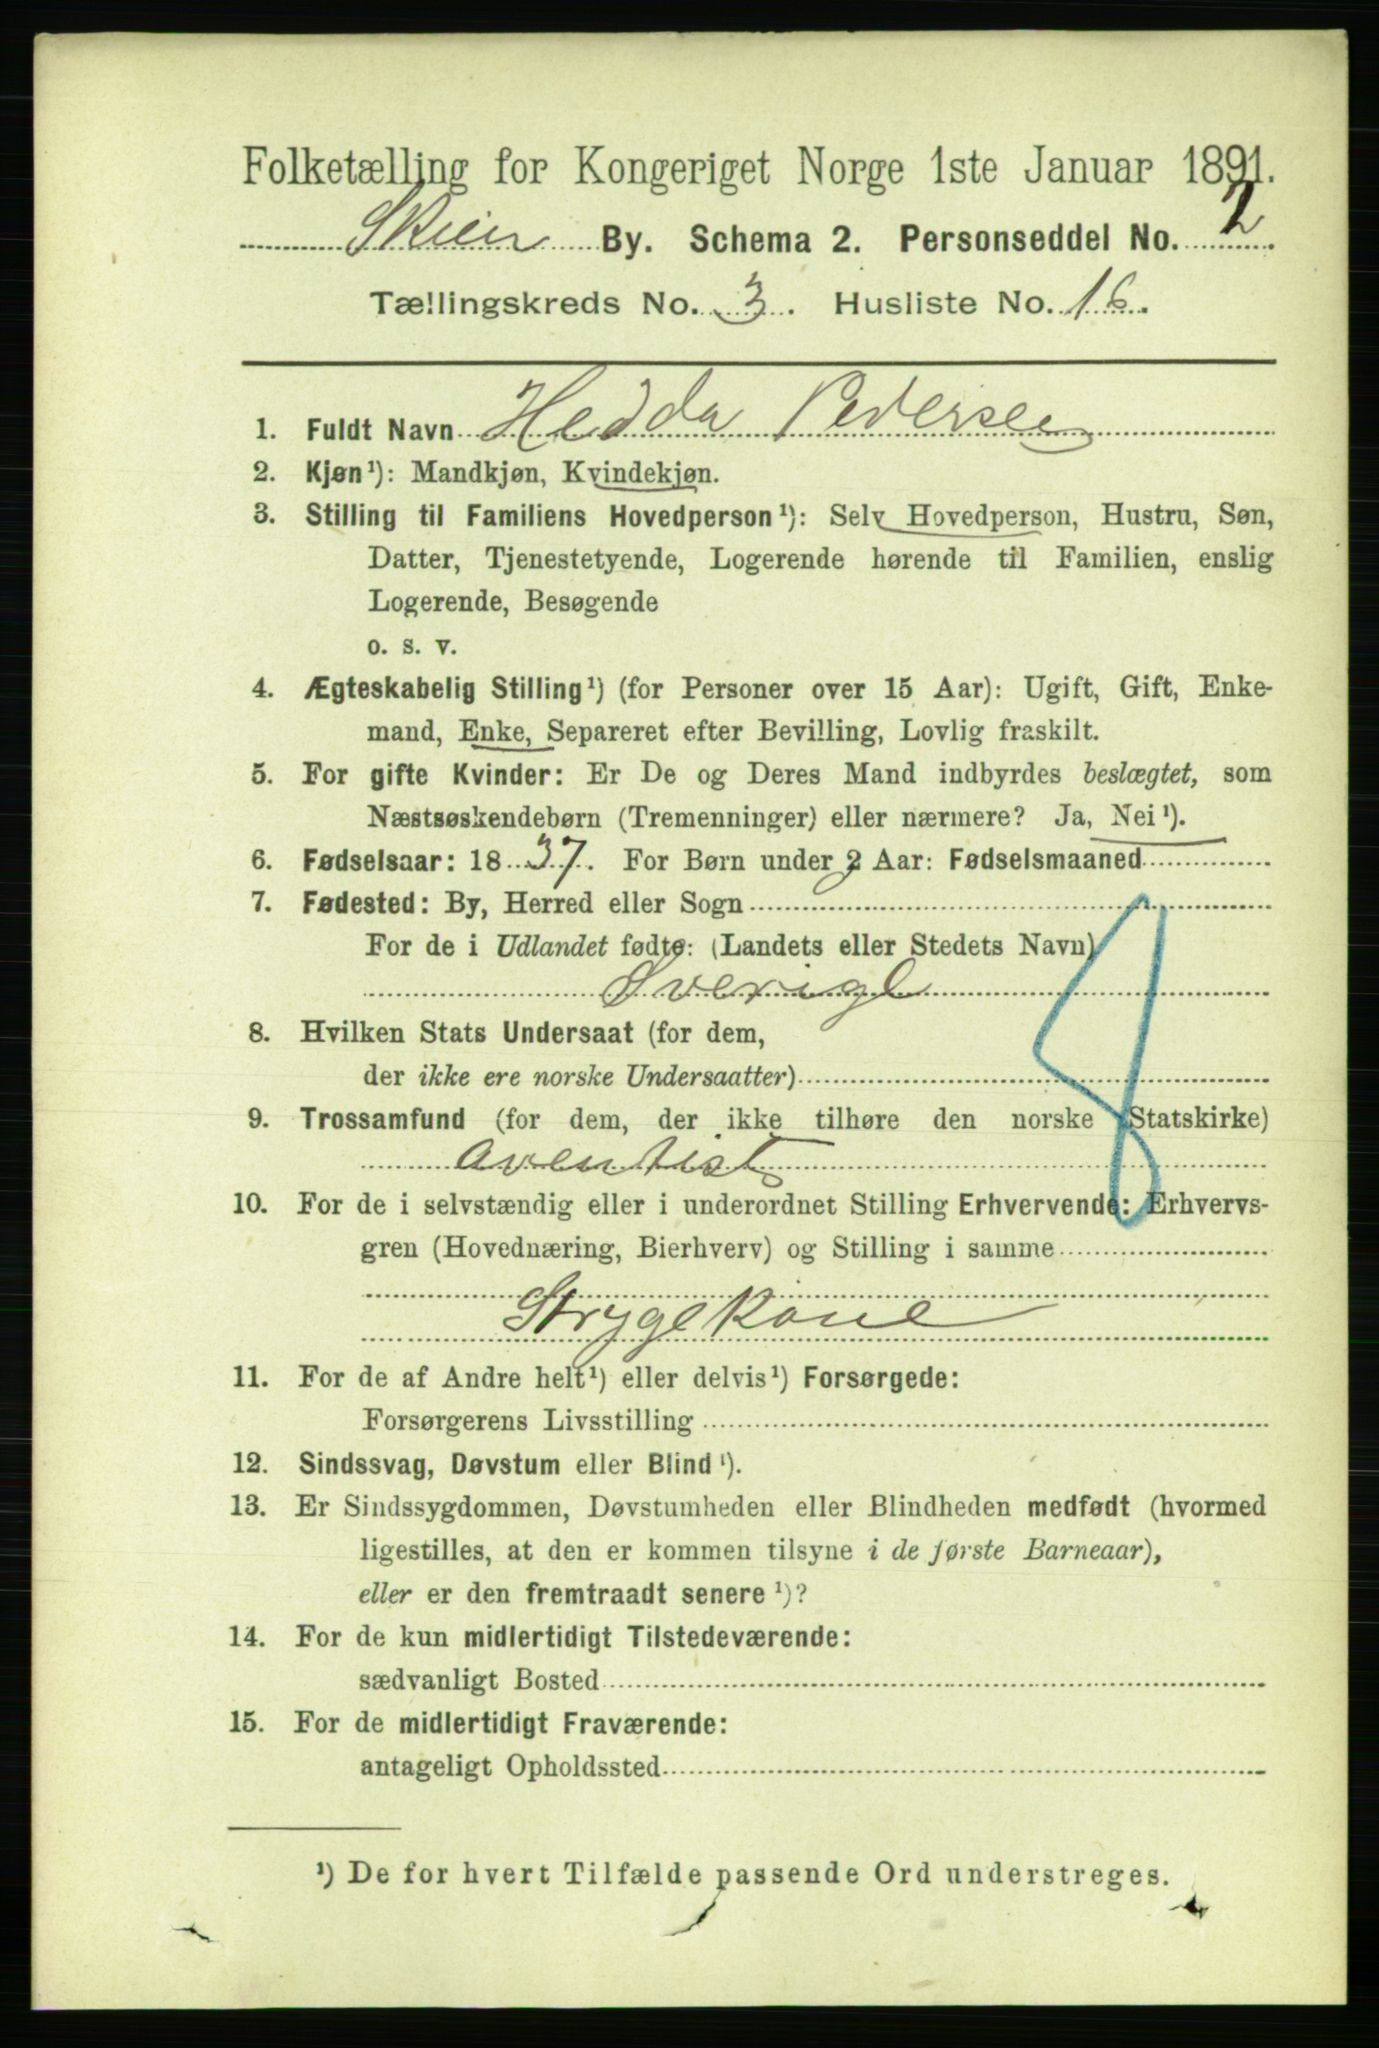 Folketælling for Kongeriget Norge 1ste Januar 1891.
Skien By. Schema 2. Personseddel No. 2.
Tællingskreds No. 3. Husliste No. 16.
1. Fuldt Navn Hedda Pedersen
2. Kjøn¹): Mandkjøn, Kvindekjøn.
3. Stilling til Familiens Hovedperson¹): Selv Hovedperson, Hustru, Søn,
Datter, Tjenestetyende, Logerende hørende til Familien, enslig
Logerende, Besøgende
o. s. v.
4. Ægteskabelig Stilling¹) (for Personer over 15 Aar): Ugift, Gift, Enke-
mand, Enke, Separeret efter Bevilling, Lovlig fraskilt.
5. For gifte Kvinder: Er De og Deres Mand indbyrdes beslægtet, som
Næstsøskendebørn (Tremenninger) eller nærmere? Ja, Nei¹).
6. Fødselsaar: 1837. For Børn under 2 Aar: Fødselsmaaned
7. Fødested: By, Herred eller Sogn
For de i Udlandet fødte: (Landets eller Stedets Navn)
Sverige
8. Hvilken Stats Undersaat (for dem,
der ikke ere norske Undersaatter)
9. Trossamfund (for dem, der ikke tilhøre den norske Statskirke)
aventist
10. For de i selvstændig eller i underordnet Stilling Erhvervende: Erhvervs-
gren (Hovednæring, Bierhverv) og Stilling i samme
Strygekone
11. For de af Andre helt¹) eller delvis¹) Forsørgede:
Forsørgerens Livsstilling
12. Sindssvag, Døvstum eller Blind¹).
13. Er Sindssygdommen, Døvstumheden eller Blindheden medfødt (hvormed
ligestilles, at den er kommen tilsyne i de første Barneaar),
eller er den fremtraadt senere¹)?
14. For de kun midlertidigt Tilstedeværende:
sædvanligt Bosted
15. For de midlertidigt Fraværende:
antageligt Opholdssted
¹) De for hvert Tilfælde passende Ord understreges.